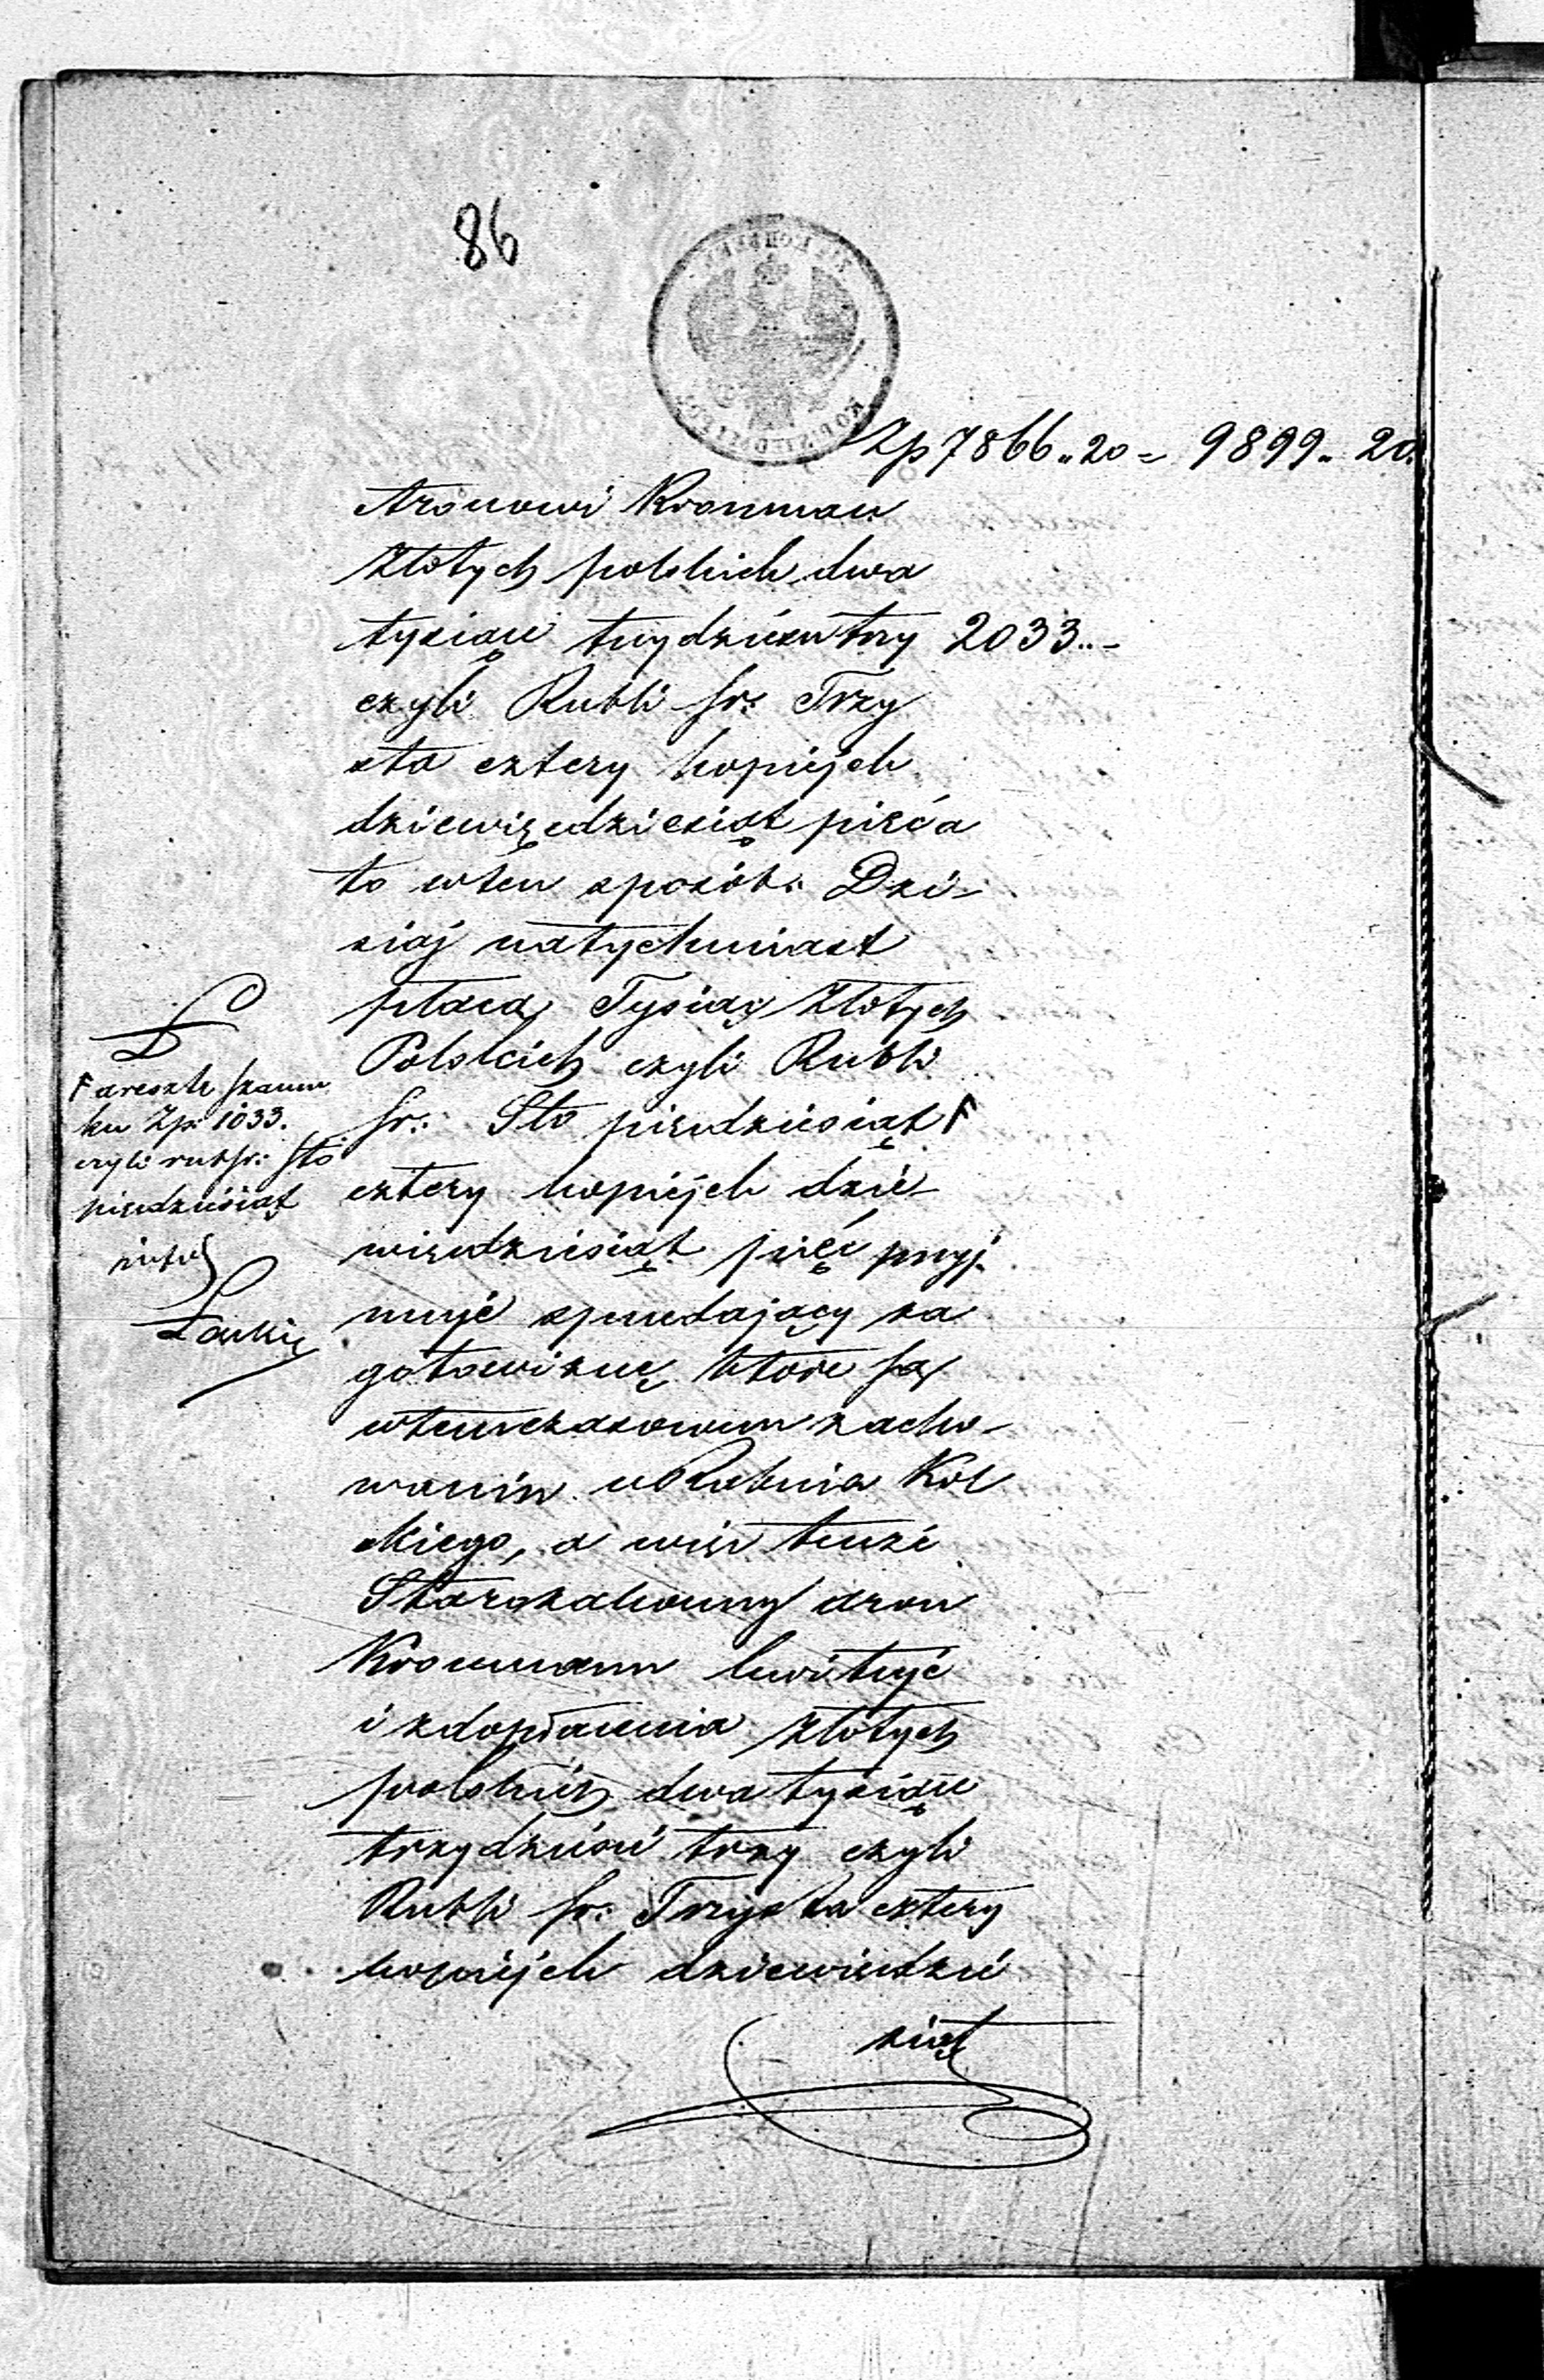 86
Zp 7866 „ 20 = 9899 „ 20.
Aronowi Kronman
Złotych polskich dwa
tysiące trzydzieści trzy 2033 „ -
czyli Rubli sr: Trzy
sta cztery kopiejek
dziewięćdziesiąt pięć a
to w ten sposób: Dzi-
siaj natychmiast
płacą Tysiąc Złotych
Polskich czyli Rubli
sr: Sto piendziesiąt F
cztery kopiejek dzie-
więdziesiąt pięć przyj-
muje sprzedający za
gotowiznę które są
w tem czasowem zacho-
waniu u Rabina Kol
skiego, a więc tenże
Starozakonny Aron
Kronmann kwituje
i z dopłacenia złotych
polskich dwa tysiące
trzydzieści trzy czyli
Rubli sr: Trzysta cztery
kopiejek dziewiędzie
siąt
F a resztę szacun
ku Zp: 1033.
czyli rub sr: sto
piendziesiąt